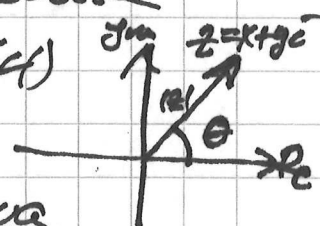 Im z=x+yi
|z| θ
Re